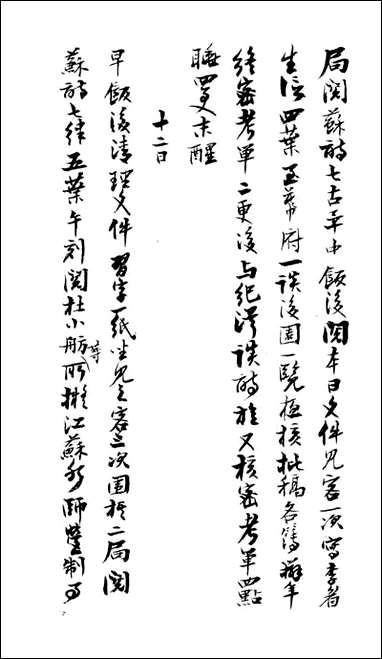 局閱蘇詩七古平中飯後閱本日文件見客一次寫李眉
生信四葉至幕府一談後園一覽極核批稿各簿辦年
終密考單二更後与紀澤談詩旋又核密考單四點
睡四更未醒
十二日
早飯後清理文件習字一紙坐見之客三次圍棋二局閱
蘇詩七律五葉午刻閱杜小舫等所擬江蘇水師營制可